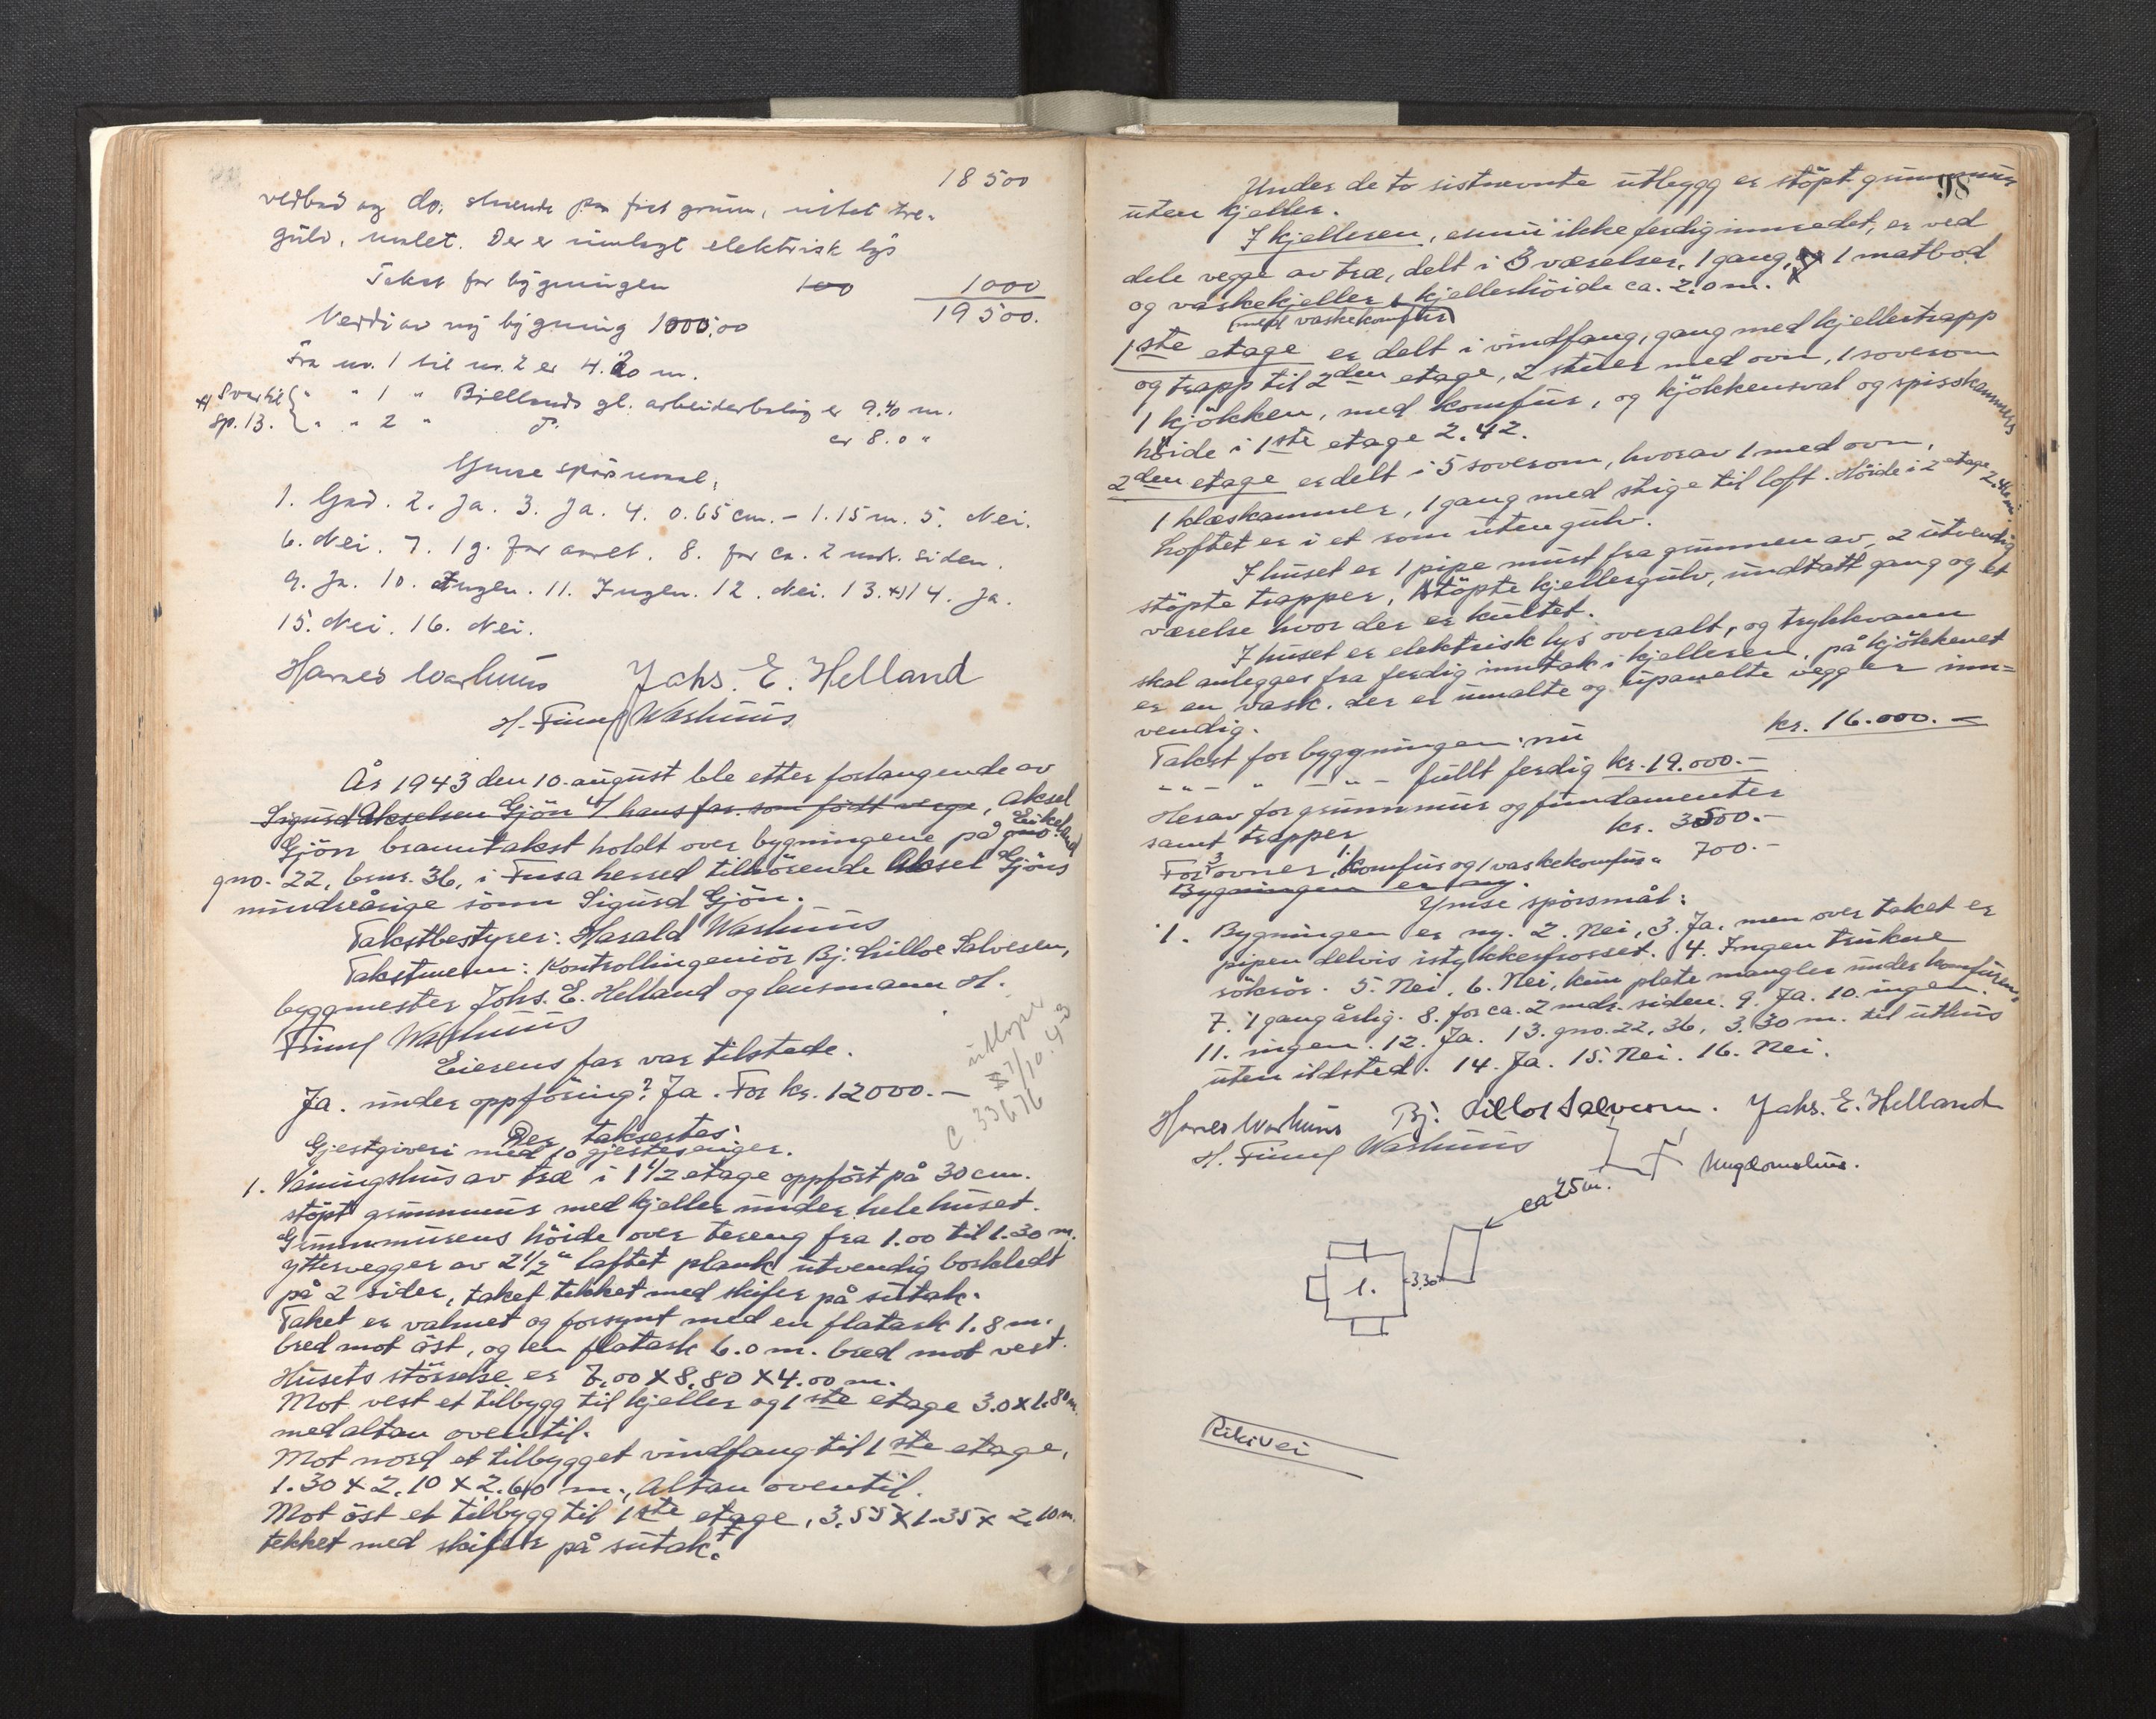 18500
vedbod og do. stående på fast grunn, uthet tre-
gulv, malet. Der er innlagt elektrisk lys
Takst for bygningen 100 1000
19500.
Verdi av ny bygning 1000,00
Fra nr. 1 til nr. 2 er 4.20 m.
x) Svar til " " 1 " Bjellands gl. arbeiderbolig er 9.40 m.
Sp. 13. " " 2 " er 8.0 "
Ymse spörsmål:
1. God. 2. Ja. 3. Ja. 4. 0.65 cm. - 1.15 m. 5. Nei.
6. Nei. 7. 1 g. for aaret. 8. for ca. 2 mdr. siden.
9. Ja. 10. Ingen. 11. Ingen. 12. Nei. 13. x) 14. Ja.
15. Nei. 16. Nei.
Warhuus Johs. E. Helland
H. Finne Warhuus
År 1943 den 10. august ble etter forlangende av
Sigurd Akselsen Gjön v/ hans far som födt verge, Aksel
Gjön branntakst holdt over bygningene på gno. Eikeland
gno. 22, brnr. 36, i Fusa herred tilhörende Aksel Gjöns
mindreårige sönn Sigurd Gjön.
Takstbestyrer: Harald Warhuus
Takstmenn: Kontrollingeniör Bj. Lilloe Salvesen,
byggmester Johs. E. Helland og lensmann H.
Finne Warhuus
Eierens far var tilstede.
Ja. under oppföring? Ja. For kr. 12000.—
utlöper
7/10.43
C 33676
Der taksertes:
Gjestgiveri med 10 gjestesenger.
1. Våningshus av træ i 1 1/2 etage oppfört på 30 cm.
stöpt grunnmur med kjeller under hele huset.
Grunnmurens höide over tereng fra 1.00 til 1.30 m.
yttervegger av 2 1/2" laftet plank utvendig bordkledt
på 2 sider, taket tekket med skifer på sutak.
Taket er valmet og forsynt med en flatark 1.8 m.
bred mot öst, og en flatark 6.0 m. bred mot vest.
Husets störrelse er 7.00 x 8.80 x 4.00 m.
Mot vest et tilbygg til kjeller og 1ste etage 3.0 x 1.80 m.
med altan oventil.
Mot nord et tilbygget vindfang til 1ste etage,
1.30 x 2.10 x 2.60 m., Altan oventil.
Mot öst et tilbygg til 1ste etage, 3.55 x 1.35 x 2.10 m.
tekket med skifer på sutak.
98
Under de to sistnevnte utbygg er stöpt grunnmur
uten kjeller.
I kjelleren, ennu ikke ferdig innredet, er ved
dele vegge av træ, delt i 3 værelser, 1 gang, og 1 matbod
og vaskekjeller kjellerhöide ca. 2.0 m.
(med vaskekomfur)
1ste etage er delt i vindfang, gang med kjellertrapp
og trapp til 2den etage, 2 stuer med ovn, 1 soverom
1 kjökken, med komfur, og kjökkensval og spiskammers
höide i 1ste etage 2.42.
2den etage er delt i 5 soverom, hvorav 1 med ovn,
1 klæskammer, 1 gang med stige til loft. Höide i 2 etage 2.46 m.
Loftet er i et rom uten gulv.
I huset er 1 pipe murt fra grunnen av, 2 utvendig
stöpte trapper, stöpte kjellergulv, undtatt gang og et
værelse hvor der er kultet.
I huset er elektrisk lys overalt, og trykkvann
skal anlegges fra ferdig inntak i kjelleren, på kjökkenet
er en vask. Der er umalte og upanelte vegger inn-
vendig.
Takst for byggningen nu kr. 16.000.—
— " — " — " — fullt ferdig kr. 19.000.—
Herav for grunnmur og fundamenter
samt trapper kr. 3500.—
For 3 ovner, 1 komfur og 1 vaskekomfur " 700.—
Bygningen er ny.
Ymse spörsmål:
1. Bygningen er ny. 2. Nei, 3. Ja, men over taket er
pipen delvis istykkerfrosset. 4. Ingen trukne
rökrör. 5. Nei. 6. Nei, kun plate mangler under komfuren,
7. 1 gang årlig. 8. for ca. 2 mdr. siden. 9. Ja. 10. ingen.
11. ingen. 12. Ja. 13. gno. 22, 36, 3.30 m. til uthus
uten ildsted. 14. Ja. 15. Nei. 16. Nei.
Warhuus Bj. Lilloe Salvesen. Johs. E. Helland
H. Finne Warhuus
Ungdomshus.
ca 25 m.
1.
3.30
Riksvei